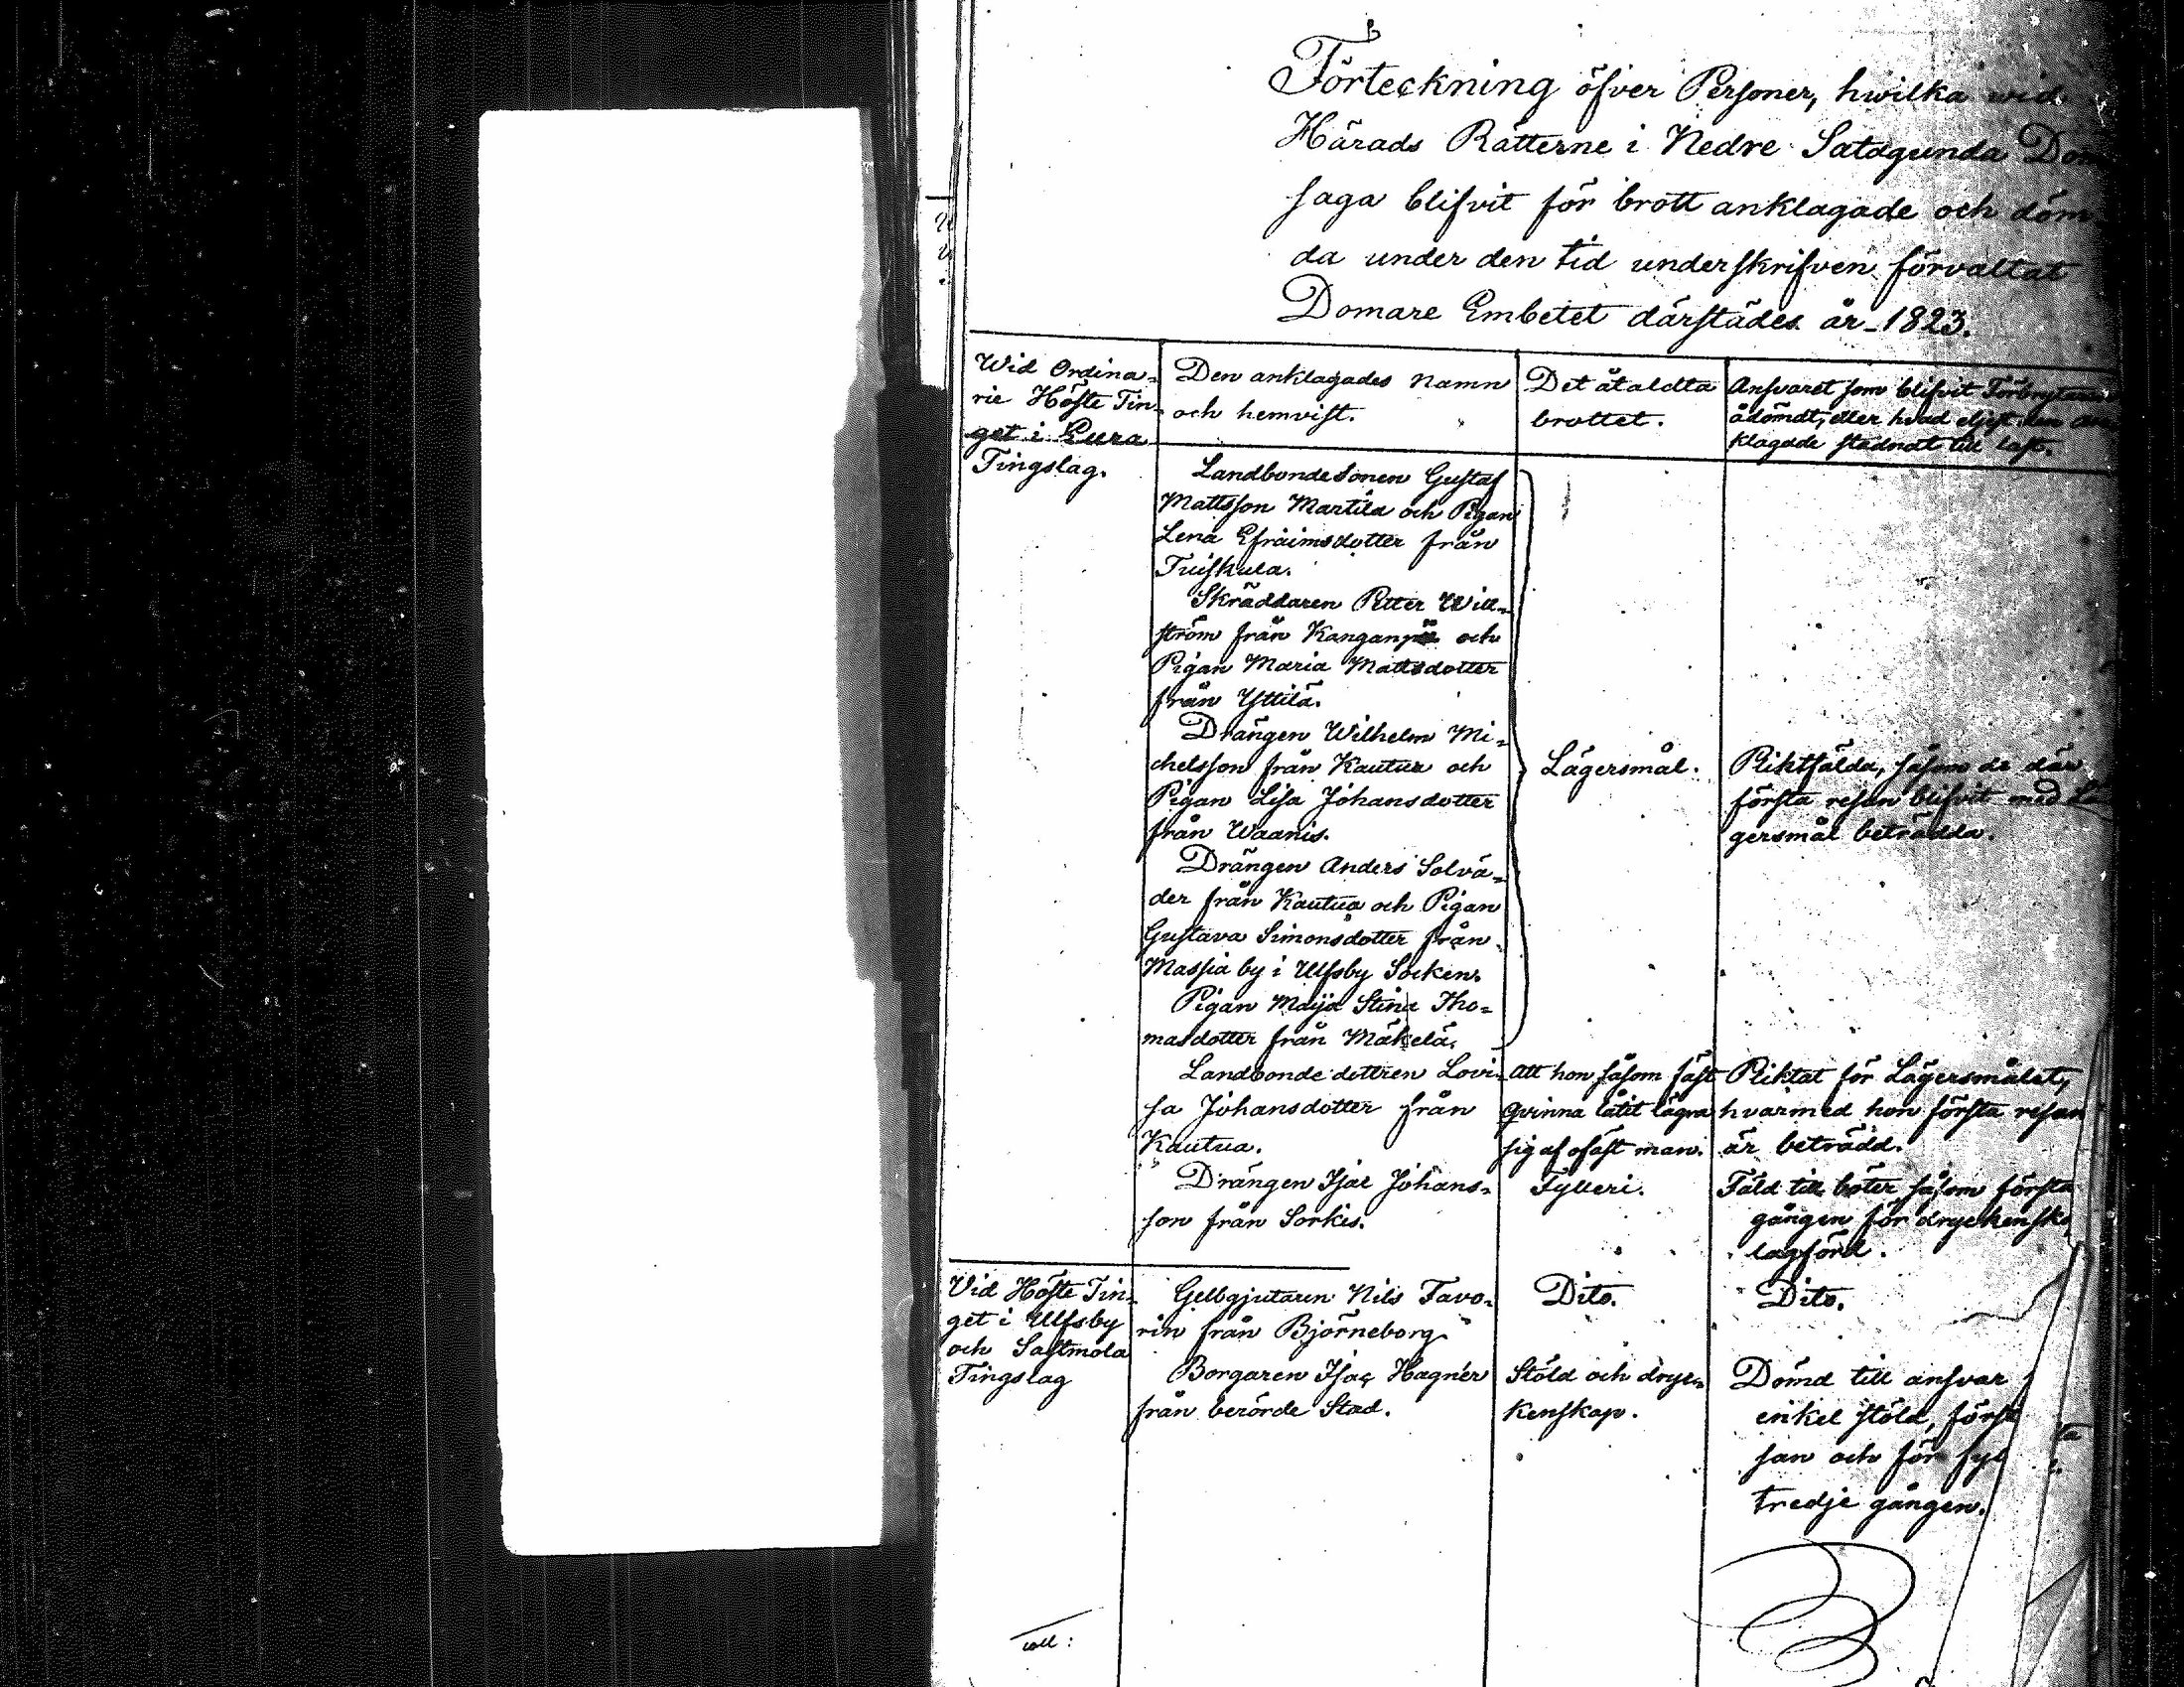 Förteckning öfver Personer, hwilka wid
Härads Rätterne i Nedre Satagunda Dom
saga blifvit för brott anklagade och döm-
da under den tid underskrifven förvaltat
Domare Embetet därstädes år 1823.
Wid Ordina-
rie Höste Tin-
get i Eura
Tingslag.
Den anklagades namn
och hemvist.
Det åtaldta
brottet.
Ansvaret som blifvit Förbrytaren
ådömdt, eller hvad eljest den an
klagade stadnat till last.
Landbondesonen Gustaf
Mattsson Martila och Pigan
Lena Efraimsdotter från
Tuiskula.
Skräddaren Petter Will-
ström från Kanganpää och
Pigan Maria Mattsdotter
från Yttilä.
Drängen Wilhelm Mi-
chelsson från Kautua och
Pigan Lisa Johansdotter
från Waanis.
Drängen Anders Solvä-
der från Kautua och Pigan
Gustava Simonsdotter från
Massia by i Ulfsby Socken.
Pigan Maija Stina Tho-
masdotter från Mäkelä.
Lägersmål.
Pliktfälda, såsom de där
första resan blifvit med Lä
gersmål beträdda.
Landbondedottren Lovi-
sa Johansdotter från
Kautua.
Att hon såsom fäst
qvinna låtit lägra
sig af ofäst man.
Pliktat för Lägersmålet,
hvarmed hon första resan
är beträdd.
Drängen Isac Johans-
son från Sorkis.
Fylleri.
Fäld till böter såsom första
gången för dryckensk
lagförd.
Vid Höste Tin-
get i Ulfsby
och Sastmola
Tingslag
Gelbgjutaren Nils Favo-
rin från Björneborg
Dito.
Dito.
Borgaren Isac Hagnér
från berörde Stad.
Stöld och dryc-
kenskap.
Dömd till ansvar
enkel stöld, först
san och för fyl
tredje gången.
coll: